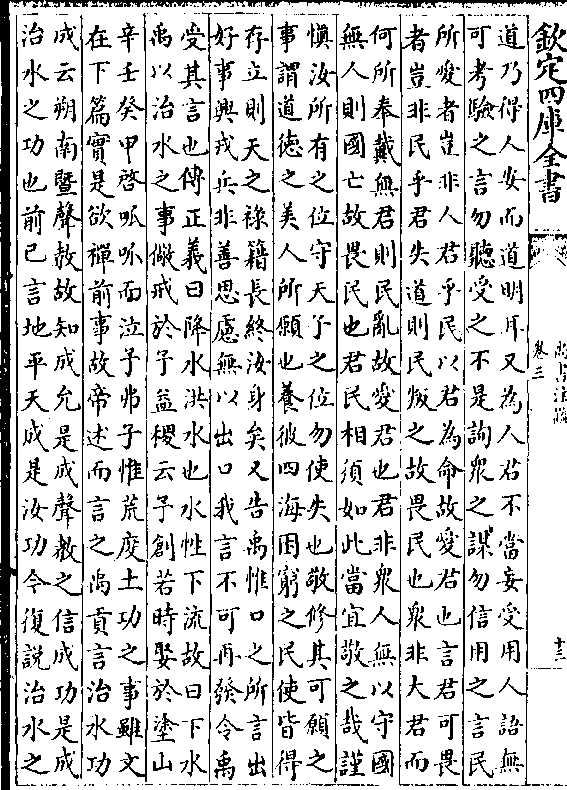 欽定四庫全書
尚書注疏
卷三
十三
道乃得人安而道明耳又為人君不當妄受用人語無
可考驗之言勿聽受之不是詢衆之謀勿信用之言民
所愛者豈非人君乎民以君為命故愛君也言君可畏
者豈非民乎君失道則民叛之故畏民也衆非大君而
何所奉戴無君則民亂故愛君也君非衆人無以守國
無人則國亡故畏民也君民相須如此當宜敬之哉謹
慎汝所有之位守天子之位勿使失也敬修其可願之
事謂道德之美人所願也養彼四海困窮之民使皆得
存立則天之祿籍長終汝身矣又告禹惟口之所言出
好事興戎兵非善思慮無以出口我言不可再發令禹
受其言也傳正義曰降水洪水也水性下流故曰下水
禹以治水之事儆戒於予益稷云予創若時娶於塗山
辛壬癸甲啓呱呱而泣予弗子惟荒度土功之事雖文
在下篇實是欲禪前事故帝述而言之禹貢言治水功
成云朔南暨聲教故知成允是成聲教之信成功是成
治水之功也前已言地平天成是汝功今復説治水之